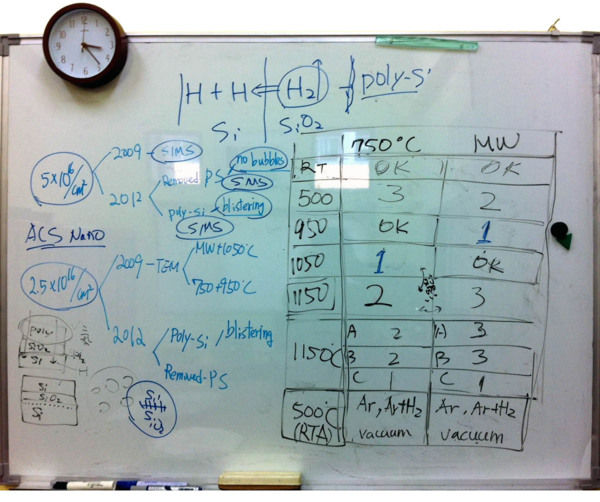 H + H ← H₂ poly-Si
Si SiO₂
5×10¹⁶/cm²
2009 - SIMS
2012
Removed PS
no bubbles
SIMS
poly-Si
blistering
SIMS
ACS Nano
2.5×10¹⁶/cm²
2009 - TEM
MW+1050°C
750+950°C
2012
Poly-Si
blistering
Removed-PS
poly
SiO₂
Si
H₂
Si
SiO₂
Si
SiO₂
750°C MW
RT OK OK
500 3 2
950 OK 1
1050 1 OK
1150 2 3
1150°C A 2 A 3
B 2 B 3
C 1 C 1
500°C (RTA) Ar, Ar+H₂ vacuum Ar, Ar+H₂ vacuum